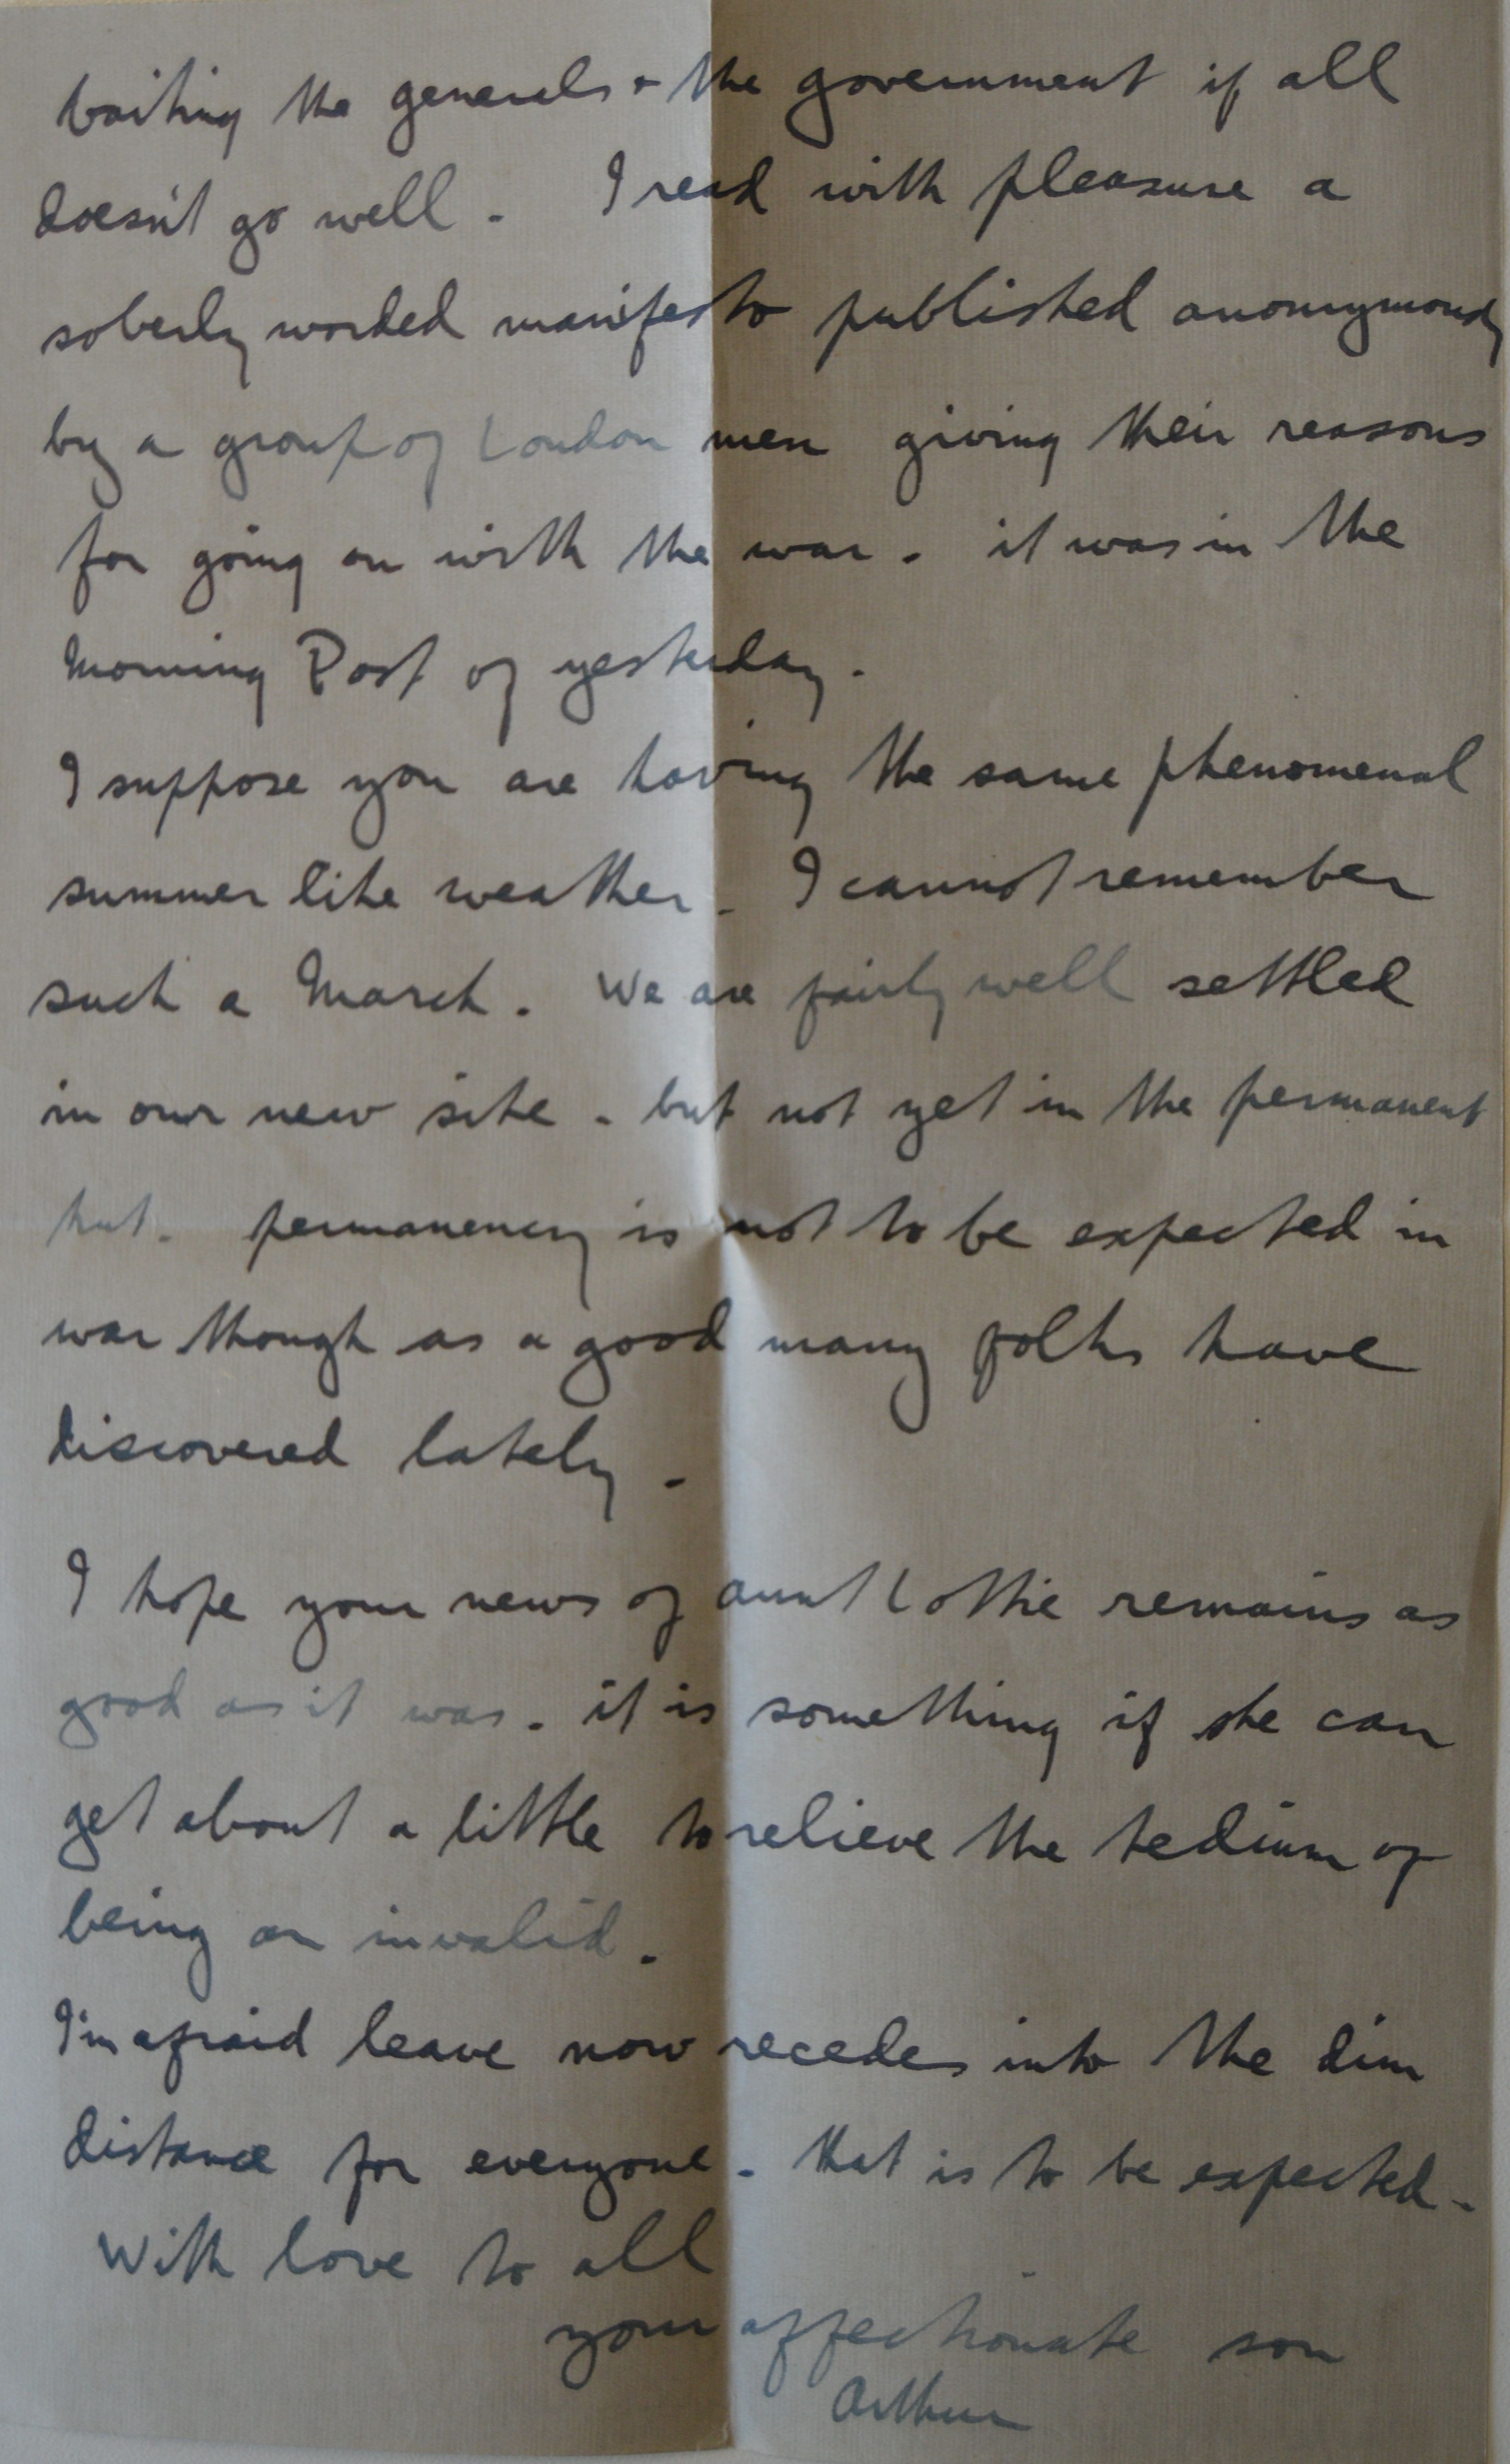 baiting the generals + the government if all
doesn't go well. I read with pleasure a
soberly worded manifesto published anonymously
by a group of London men giving their reasons
for going on with the war. it was in the
Morning Post of yesterday.
I suppose you are having the same phenomenal
summer like weather. I cannot remember
such a March. We are fairly well settled
in our new site - but not yet in the permanent
hut. permanency is not to be expected in
war though as a good many folks have
discovered lately.
I hope your news of aunt Lottie remains as
good as it was. it is something if she can
get about a little to relieve the tedium of
being an invalid.
I'm afraid leave now recedes into the dim
distance for everyone. that is to be expected.
With love to all
your affectionate son
Arthur